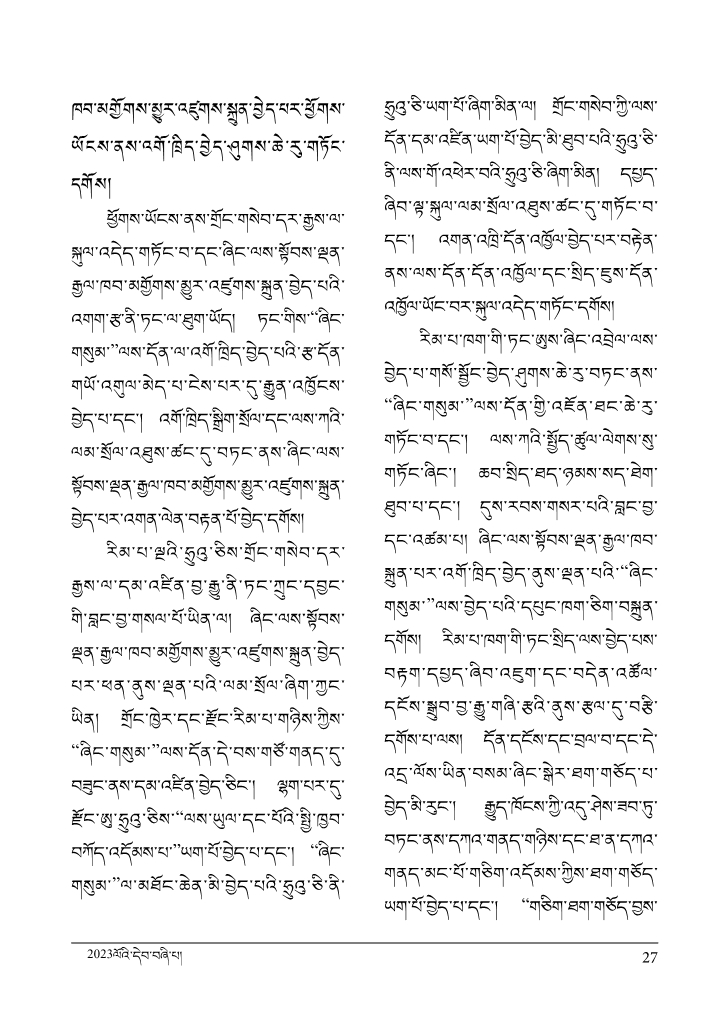 ཁབ་མགྱོགས་མྱུར་འཛུགས་སྐྲུན་བྱེད་པར་ཕྱོགས་
ཡོངས་ནས་འགོ་ཁྲིད་བྱེད་ཤུགས་ཆེ་རུ་གཏོང་
དགོས།
ཕྱོགས་ཡོངས་ནས་གྲོང་གསེབ་དར་རྒྱས་ལ་
སྐུལ་འདེད་གཏོང་བ་དང་ཞིང་ལས་སྟོབས་ལྡན་
རྒྱལ་ཁབ་མགྱོགས་མྱུར་འཛུགས་སྐྲུན་བྱེད་པའི་
འགག་རྩ་ནི་ཏང་ལ་ཐུག་ཡོད། ཏང་གིས་“ཞིང་
གསུམ་”ལས་དོན་ལ་འགོ་ཁྲིད་བྱེད་པའི་རྩ་དོན་
གཡོ་འགུལ་མེད་པ་ངེས་པར་དུ་རྒྱུན་འཁྱོངས་
བྱེད་པ་དང་། འགོ་ཁྲིད་སྒྲིག་སྲོལ་དང་ལས་ཀའི་
ལམ་སྲོལ་འཐུས་ཚང་དུ་བཏང་ནས་ཞིང་ལས་
སྟོབས་ལྡན་རྒྱལ་ཁབ་མགྱོགས་མྱུར་འཛུགས་སྐྲུན་
བྱེད་པར་འགན་ལེན་བརྟན་པོ་བྱེད་དགོས།
རིམ་པ་ལྔའི་ཧྲུའུ་ཅིས་གྲོང་གསེབ་དར་
རྒྱས་ལ་དམ་འཛིན་བྱ་རྒྱུ་ནི་ཏང་ཀྲུང་དབྱང་
གི་བླང་བྱ་གསལ་པོ་ཡིན་ལ། ཞིང་ལས་སྟོབས་
ལྡན་རྒྱལ་ཁབ་མགྱོགས་མྱུར་འཛུགས་སྐྲུན་བྱེད་
པར་ཕན་ནུས་ལྡན་པའི་ལམ་སྲོལ་ཞིག་ཀྱང་
ཡིན། གྲོང་ཁྱེར་དང་རྫོང་རིམ་པ་གཉིས་ཀྱིས་
“ཞིང་གསུམ་”ལས་དོན་དེ་བས་གཙོ་གནད་དུ་
བཟུང་ནས་དམ་འཛིན་བྱེད་ཅིང་། ལྷག་པར་དུ་
རྫོང་ཨུ་ཧྲུའུ་ཅིས་“ལས་ཡུལ་དང་པོའི་སྤྱི་ཁྱབ་
བཀོད་འདོམས་པ་”ཡག་པོ་བྱེད་པ་དང་། “ཞིང་
གསུམ་”ལ་མཐོང་ཆེན་མི་བྱེད་པའི་ཧྲུའུ་ཅི་ནི་
ཧྲུའུ་ཅི་ཡག་པོ་ཞིག་མིན་ལ། གྲོང་གསེབ་ཀྱི་ལས་
དོན་དམ་འཛིན་ཡག་པོ་བྱེད་མི་ཐུབ་པའི་ཧྲུའུ་ཅི་
ནི་ལས་གོ་འཕེར་བའི་ཧྲུའུ་ཅི་ཞིག་མིན། དཔྱད་
ཞིབ་ལྟ་སྐུལ་ལམ་སྲོལ་འཐུས་ཚང་དུ་གཏོང་བ་
དང་། འགན་འཁྲི་དོན་འཁྱོལ་བྱེད་པར་བརྟེན་
ནས་ལས་དོན་དོན་འཁྱོལ་དང་སྲིད་ཇུས་དོན་
འཁྱོལ་ཡོང་བར་སྐུལ་འདེད་གཏོང་དགོས།
རིམ་པ་ཁག་གི་ཏང་ཨུས་ཞིང་འབྲེལ་ལས་
བྱེད་པ་གསོ་སྦྱོང་བྱེད་ཤུགས་ཆེ་རུ་བཏང་ནས་
“ཞིང་གསུམ་”ལས་དོན་གྱི་འཛོན་ཐང་ཆེ་རུ་
གཏོང་བ་དང་། ལས་ཀའི་སྤྱོད་ཚུལ་ལེགས་སུ་
གཏོང་ཞིང་། ཆབ་སྲིད་ཐད་ཉམས་སད་ཐེག་
ཐུབ་པ་དང་། དུས་རབས་གསར་པའི་བླང་བྱ་
དང་འཚམ་པ། ཞིང་ལས་སྟོབས་ལྡན་རྒྱལ་ཁབ་
སྐྲུན་པར་འགོ་ཁྲིད་བྱེད་ནུས་ལྡན་པའི་“ཞིང་
གསུམ་”ལས་བྱེད་པའི་དཔུང་ཁག་ཅིག་བསྐྲུན་
དགོས། རིམ་པ་ཁག་གི་ཏང་སྲིད་ལས་བྱེད་པས་
བརྟག་དཔྱད་ཞིབ་འཇུག་དང་བདེན་འཚོལ་
དངོས་སྒྲུབ་བྱ་རྒྱུ་གཞི་རྩའི་ནུས་རྩལ་དུ་བརྩི་
དགོས་པ་ལས། དོན་དངོས་དང་བྲལ་བ་དང་དེ་
འདྲ་ལོས་ཡིན་བསམ་ཞིང་སྒེར་ཐག་གཅོད་པ་
བྱེད་མི་རུང་། རྒྱུད་ཁོངས་ཀྱི་འདུ་ཤེས་ཟབ་ཏུ་
བཏང་ནས་དཀའ་གནད་གཉིས་དང་ཐ་ན་དཀའ་
གནད་མང་པོ་གཅིག་འདོམས་ཀྱིས་ཐག་གཅོད་
ཡག་པོ་བྱེད་པ་དང་། “གཅིག་ཐག་གཅོད་བྱས་
2023ལོའི་དེབ་བཞི་པ།
27